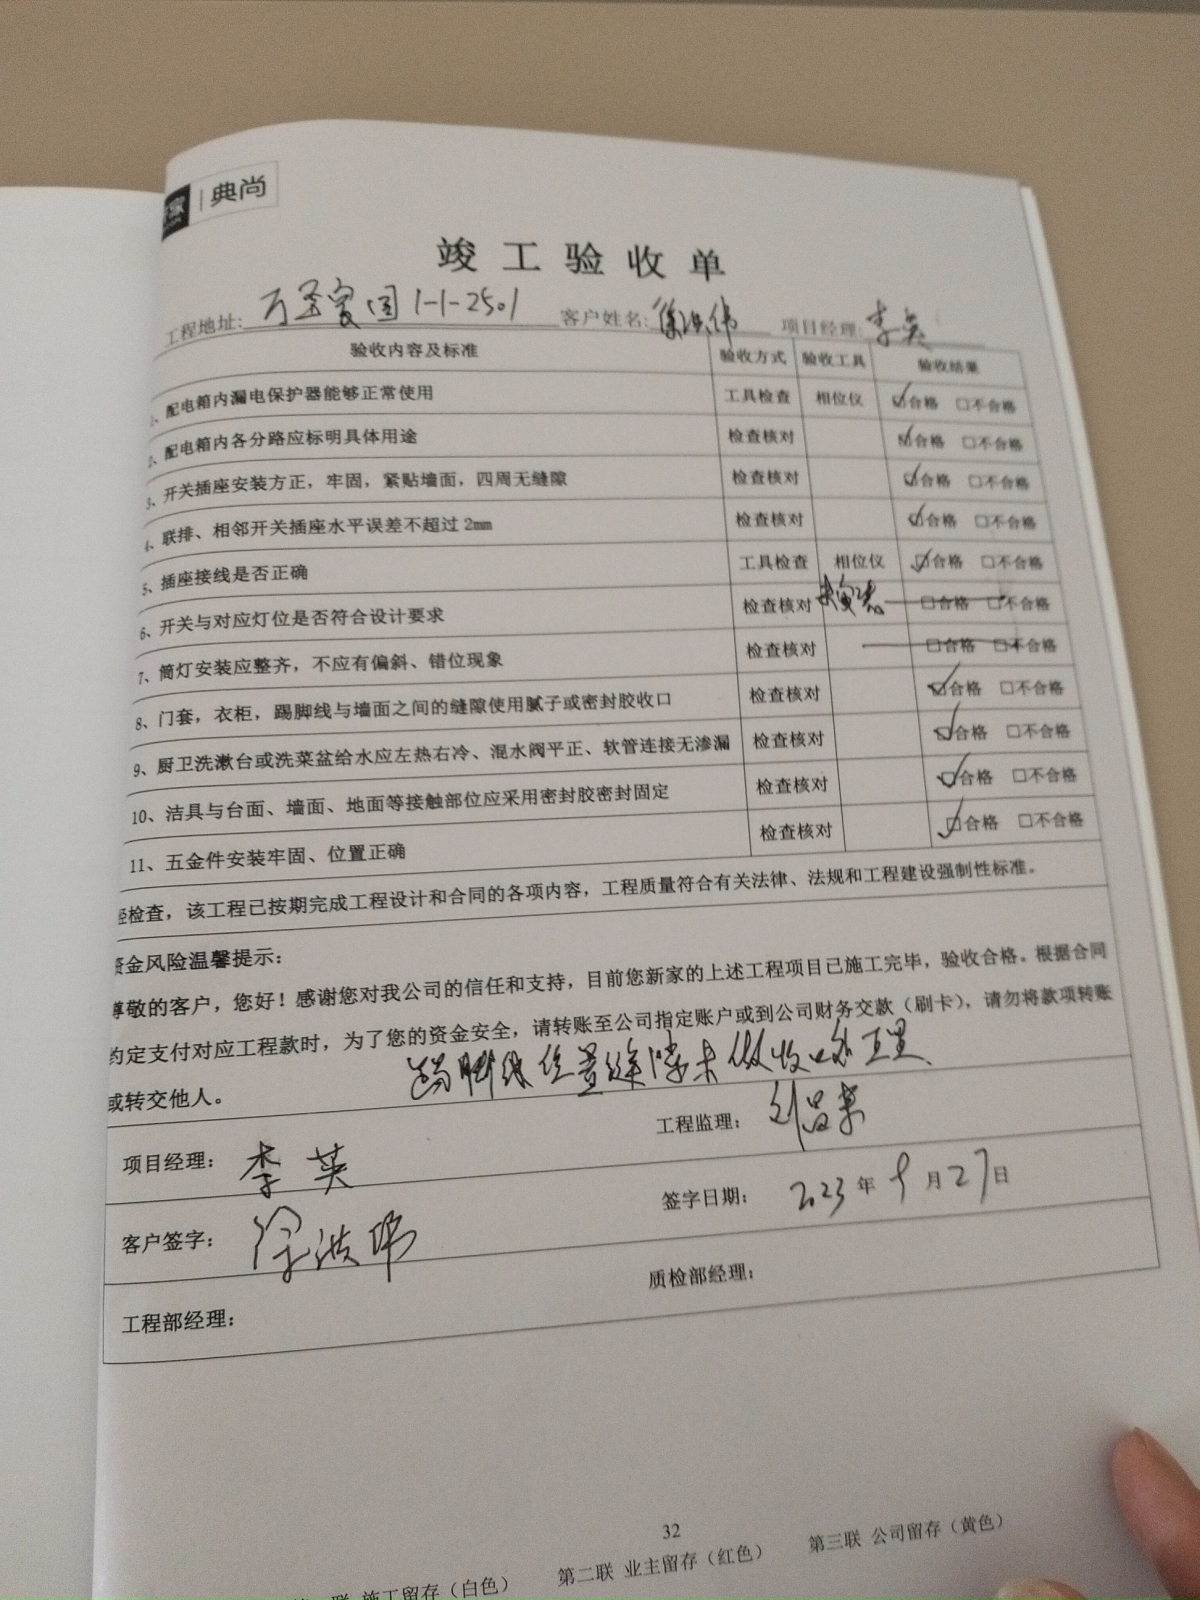 家 | 典尚
竣工验收单
工程地址: 1-1-2501 客户姓名: 徐洪伟 项目经理: 李英
验收内容及标准 验收方式 验收工具 验收结果
1、配电箱内漏电保护器能够正常使用 工具检查 相位仪 ☑合格 □不合格
2、配电箱内各分路应标明具体用途 检查核对 ☑合格 □不合格
3、开关插座安装方正，牢固，紧贴墙面，四周无缝隙 检查核对 ☑合格 □不合格
4、联排、相邻开关插座水平误差不超过2mm 检查核对 ☑合格 □不合格
5、插座接线是否正确 工具检查 相位仪 ☑合格 □不合格
6、开关与对应灯位是否符合设计要求 检查核对 □合格 □不合格
7、筒灯安装应整齐，不应有偏斜、错位现象 检查核对 □合格 □不合格
8、门套，衣柜，踢脚线与墙面之间的缝隙使用腻子或密封胶收口 检查核对 ☑合格 □不合格
9、厨卫洗漱台或洗菜盆给水应左热右冷、混水阀平正、软管连接无渗漏 检查核对 ☑合格 □不合格
10、洁具与台面、墙面、地面等接触部位应采用密封胶密封固定 检查核对 ☑合格 □不合格
11、五金件安装牢固、位置正确 检查核对 ☑合格 □不合格
经检查，该工程已按期完成工程设计和合同的各项内容，工程质量符合有关法律、法规和工程建设强制性标准。
资金风险温馨提示：
尊敬的客户，您好！感谢您对我公司的信任和支持，目前您新家的上述工程项目已施工完毕，验收合格。根据合同
约定支付对应工程款时，为了您的资金安全，请转账至公司指定账户或到公司财务交款（刷卡），请勿将款项转账
或转交他人。 踢脚线位置缝隙未做收口处理
项目经理： 李英 工程监理：
客户签字： 徐洪伟 签字日期： 2023年9月27日
工程部经理： 质检部经理：
32
联 施工留存（白色） 第二联 业主留存（红色） 第三联 公司留存（黄色）